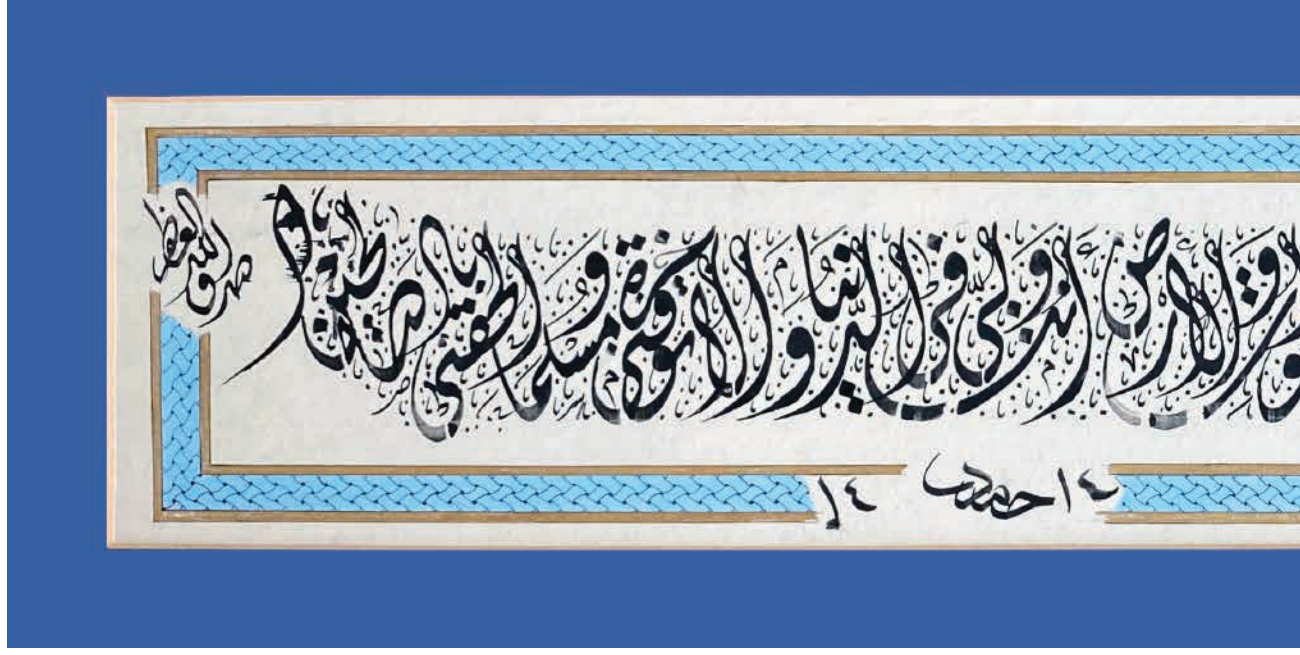 والأرض أنت وليي في الدنيا والآخرة توفني مسلما وألحقني بالصالحين
صدق الله العظيم